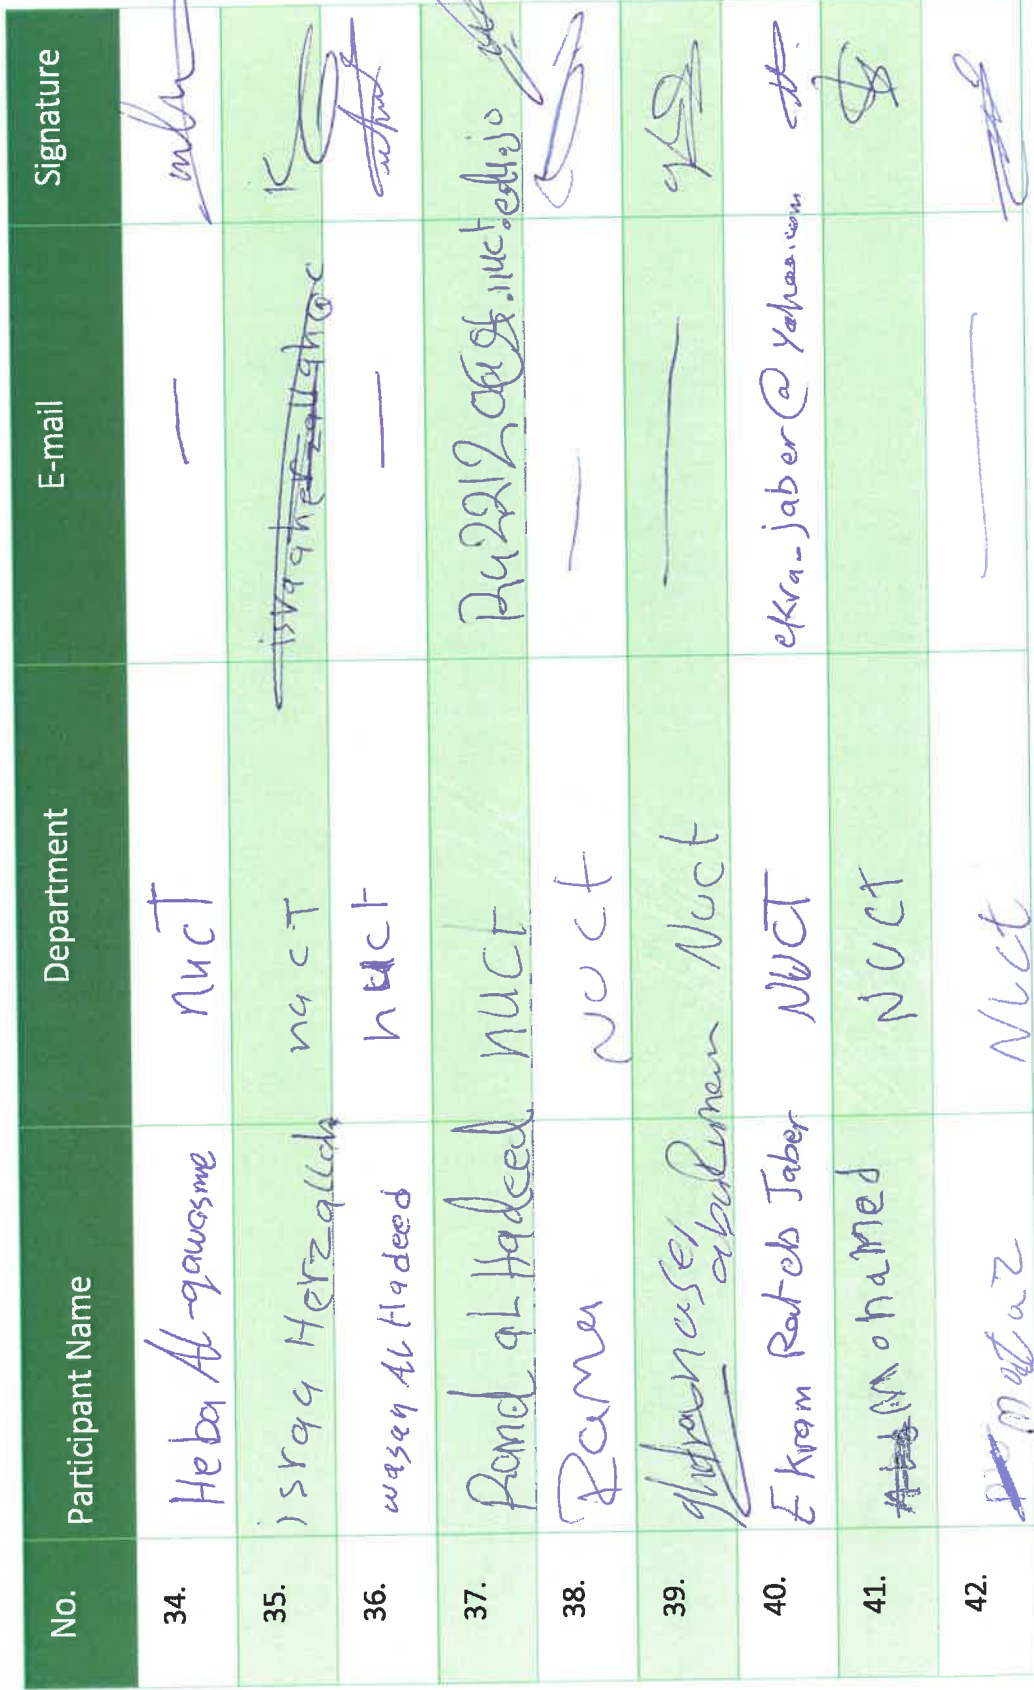 No. Participant Name Department E-mail Signature
34. Heba Al-qawasme nucT —
35. israa Herzallah nuct
36. wasan AL Hadeed nuct —
37. Rand aL Hadeed nuct
38. Rama Nuct —
39. Nuct —
40. Ekram Rateb Jaber NUCT ekra_jaber@yahoo.com
41. Mohamed NUCT
42. Nuct —